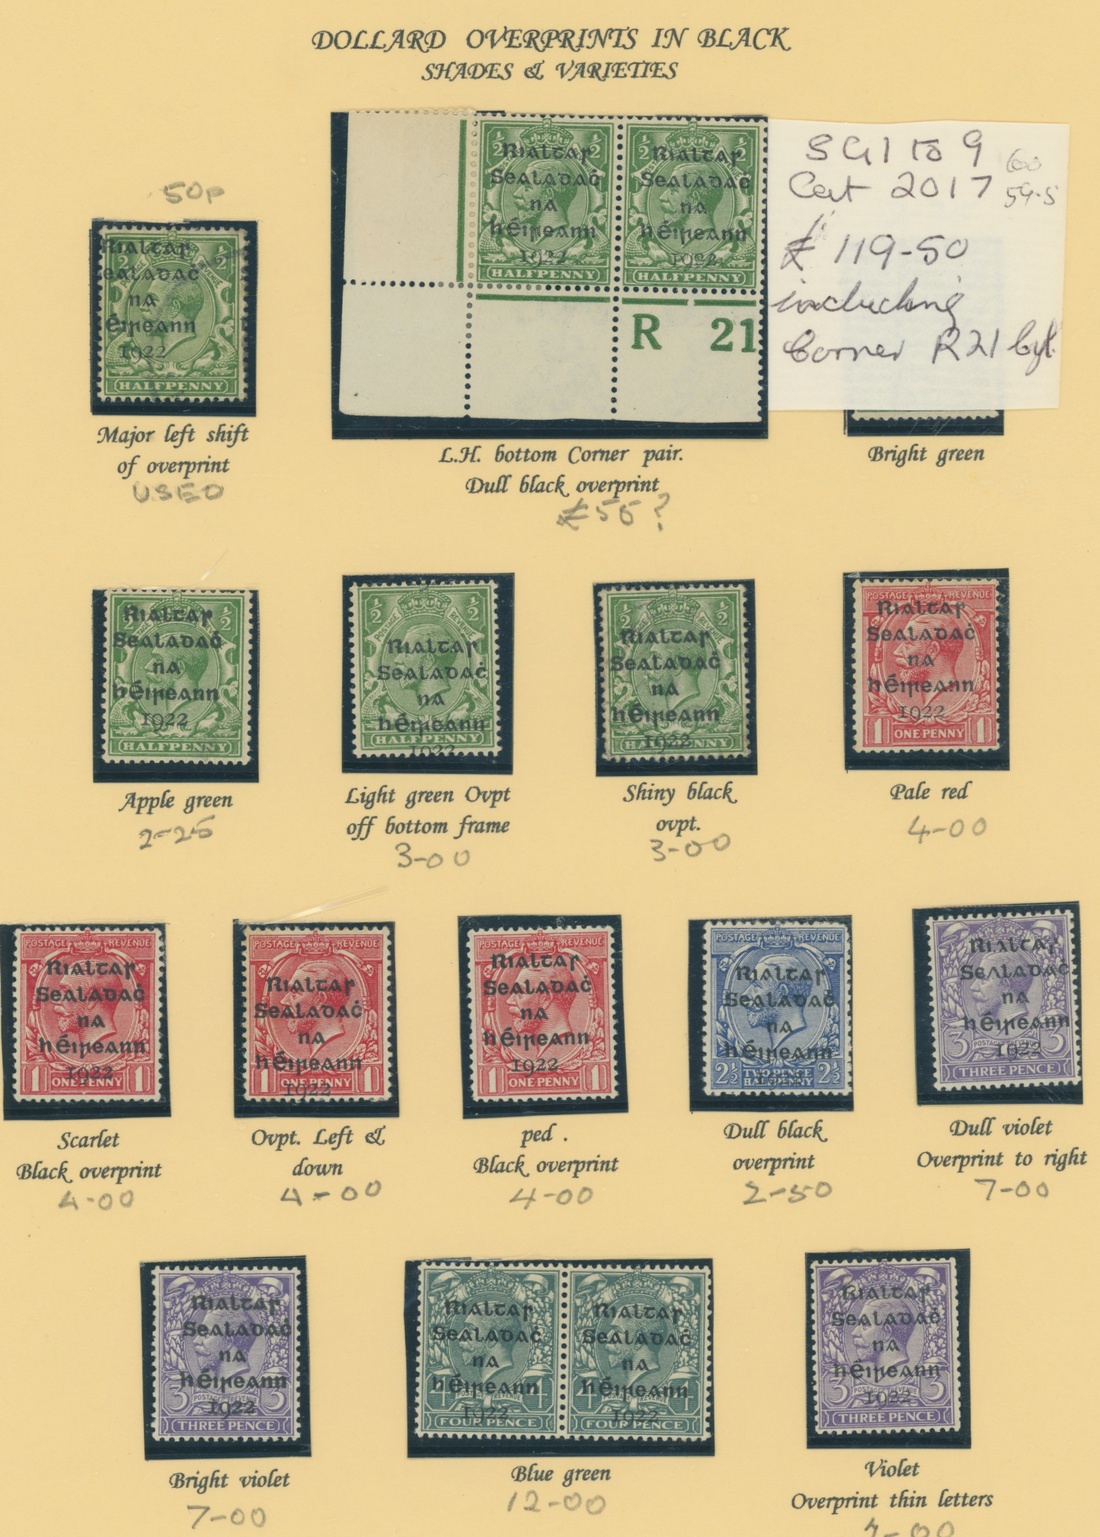 DOLLARD OVERPRINTS IN BLACK
SHADES & VARIETIES
50p
Rialtas
Sealadaċ
na
Éireann
1922
HALFPENNY
Major left shift
of overprint
USED
½ ½ ½ ½
Rialtas Rialtas
Sealadaċ Sealadaċ
na na
hÉireann hÉireann
1922 1922
HALFPENNY HALFPENNY
R 21
L.H. bottom Corner pair.
Dull black overprint
£55?
SG1 to 9
60
Cat 2017
59.5
£119-50
including
Corner R21 Cyl.
Bright green
½ ½
Rialtas
Sealadaċ
na
hÉireann
1922
HALFPENNY
Apple green
2-25
½ ½
Rialtas
Sealadaċ
na
hÉireann
1922
HALFPENNY
Light green Ovpt
off bottom frame
3-00
½ ½
Rialtas
Sealadaċ
na
hÉireann
1922
HALFPENNY
Shiny black
ovpt.
3-00
POSTAGE REVENUE
Rialtas
Sealadaċ
na
hÉireann
1922
1 ONE PENNY 1
Pale red
4-00
POSTAGE REVENUE
Rialtas
Sealadaċ
na
hÉireann
1922
1 ONE PENNY 1
Scarlet
Black overprint
4-00
POSTAGE REVENUE
Rialtas
Sealadaċ
na
hÉireann
1922
1 ONE PENNY 1
Ovpt. Left &
down
4-00
POSTAGE REVENUE
Rialtas
Sealadaċ
na
hÉireann
1922
1 ONE PENNY 1
ped .
Black overprint
4-00
POSTAGE REVENUE
Rialtas
Sealadaċ
na
hÉireann
2½ TWO PENCE HALFPENNY 2½
Dull black
overprint
2-50
Rialtas
Sealadaċ
na
hÉireann
3 POSTAGE REVENUE 3
1922
THREE PENCE
Dull violet
Overprint to right
7-00
Rialtas
Sealadaċ
na
hÉireann
3 POSTAGE REVENUE 3
1922
THREE PENCE
Bright violet
7-00
Rialtas Rialtas
Sealadaċ Sealadaċ
na na
hÉireann hÉireann
1922 1922
FOUR PENCE FOUR PENCE
Blue green
12-00
Rialtas
Sealadaċ
na
hÉireann
1922
THREE PENCE
Violet
Overprint thin letters
7-00